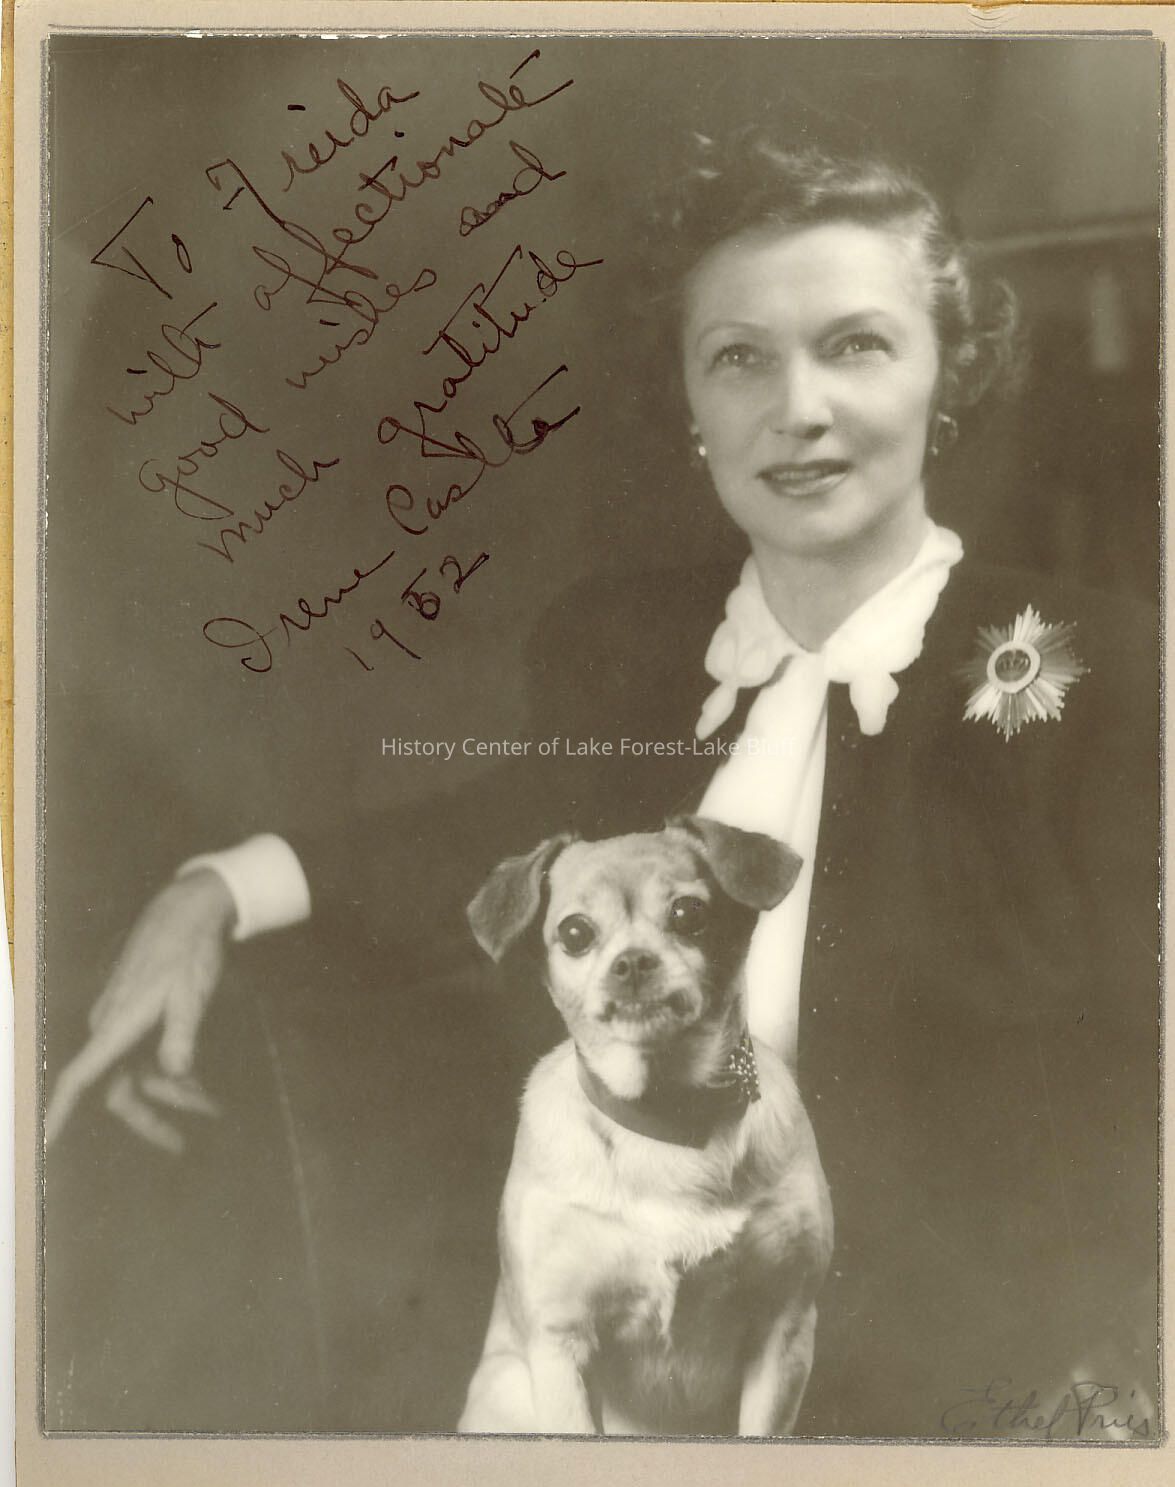 To Freida
with affectionate
good wishes and
much gratitude
Irene Castle
1952
History Center of Lake Forest-Lake Bluff
Ethel Pries